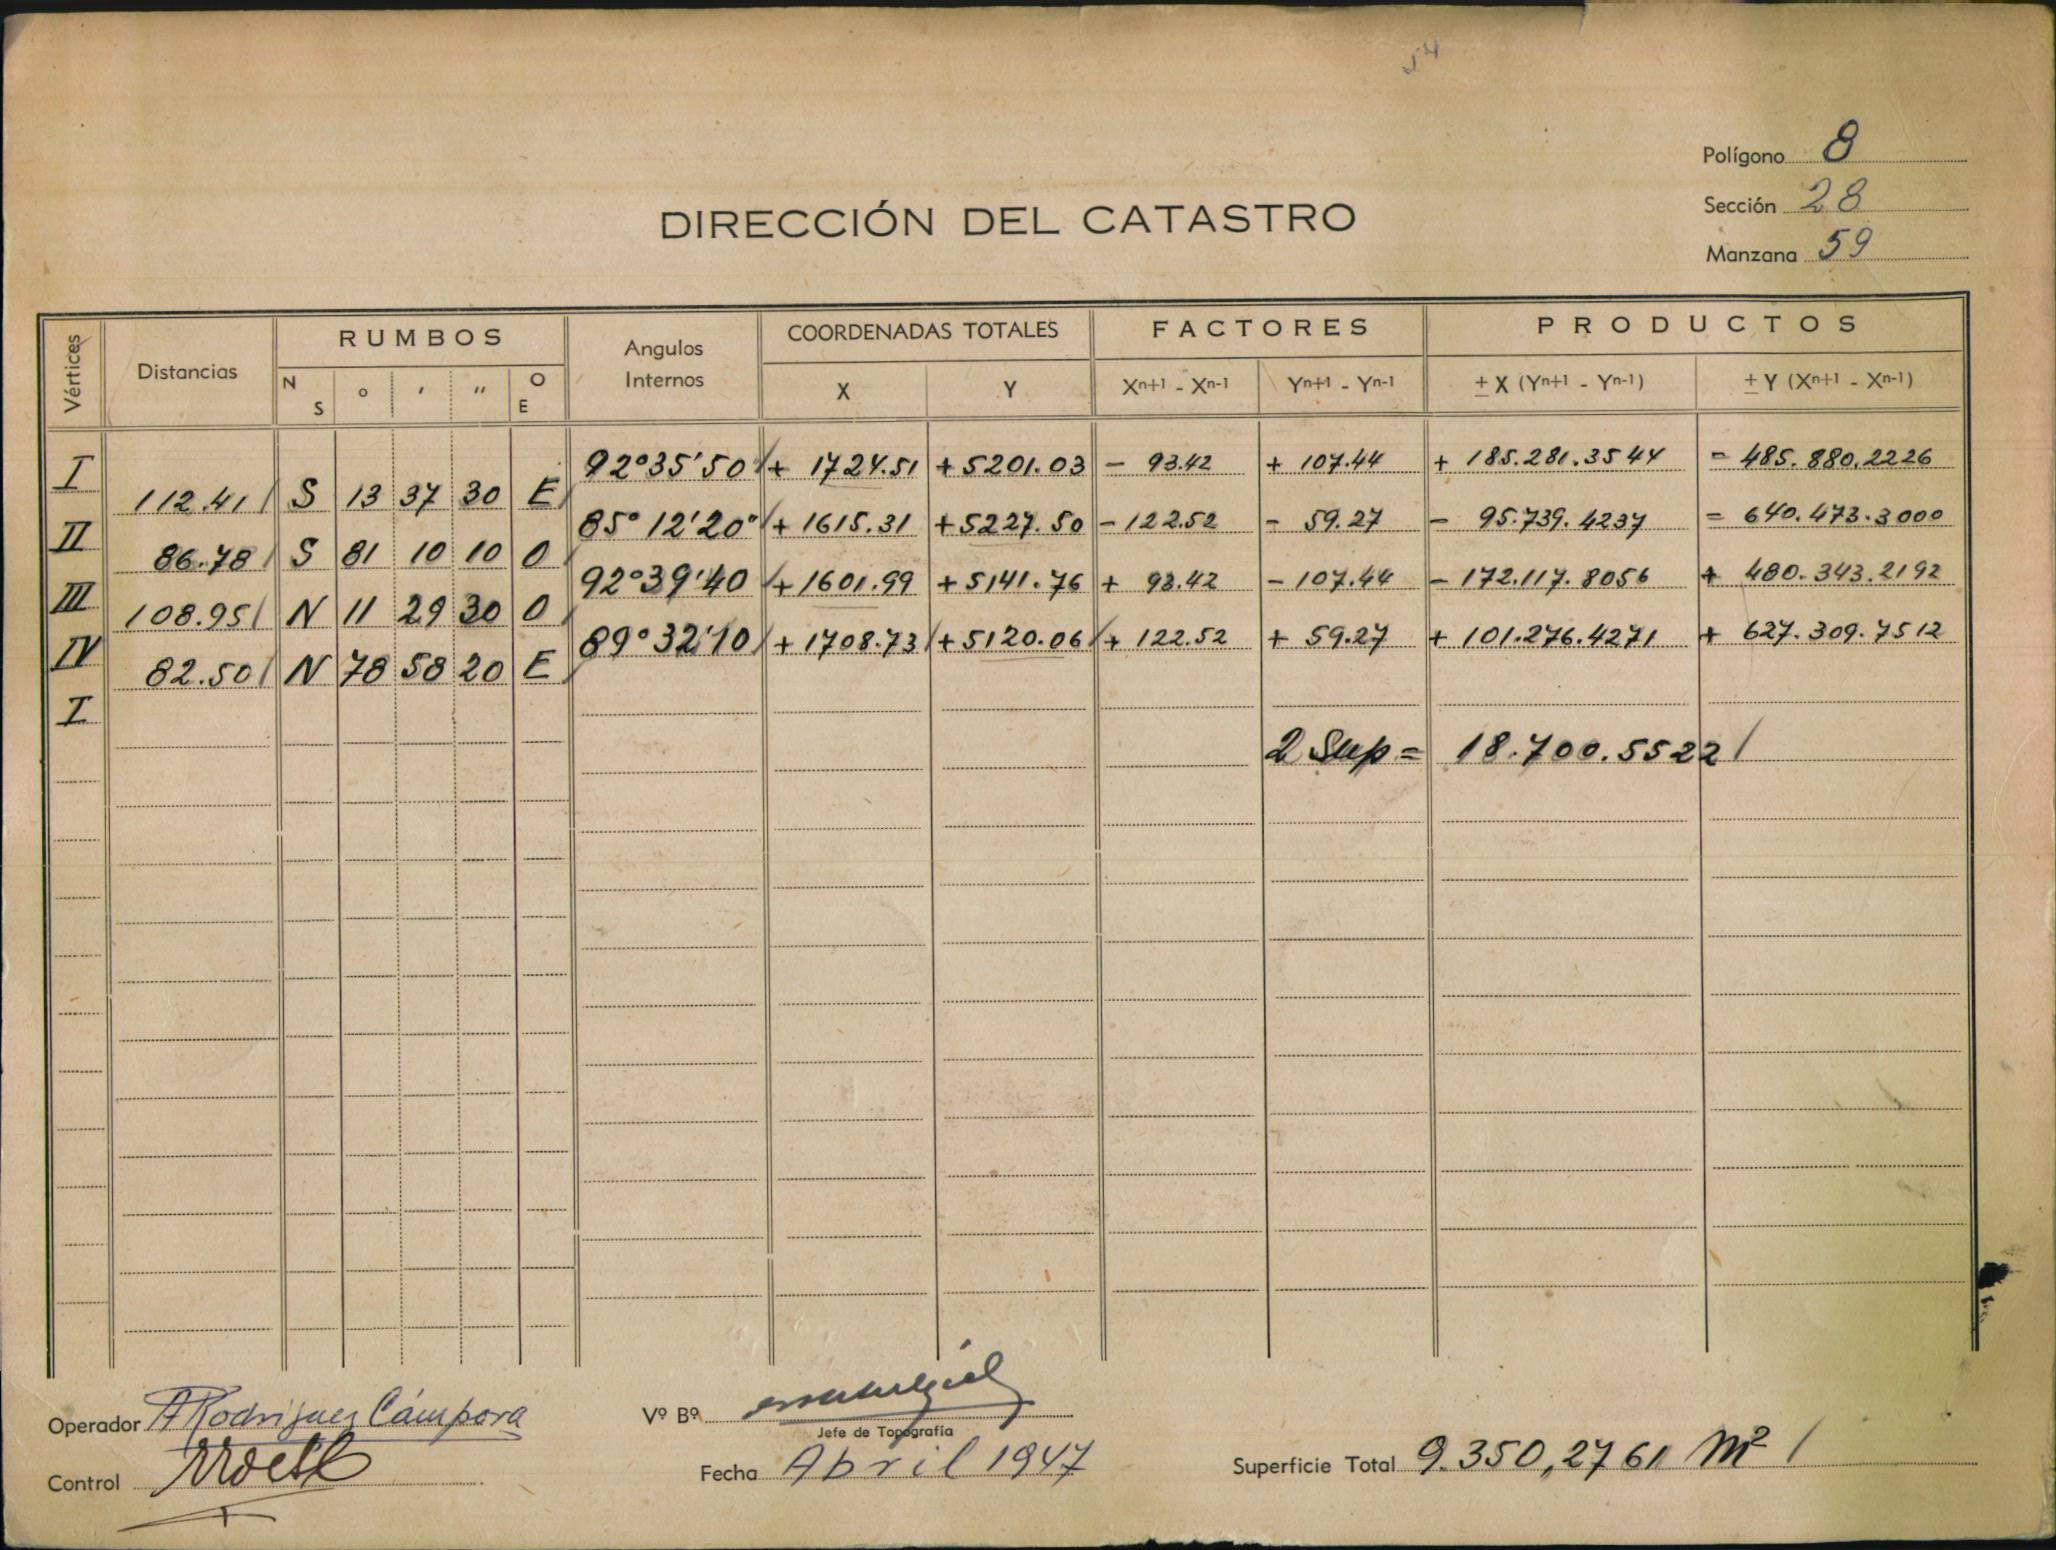 54
Polígono 8
Sección 28
Manzana 59
DIRECCIÓN DEL CATASTRO
Vértices Distancias RUMBOS Angulos Internos COORDENADAS TOTALES FACTORES PRODUCTOS
N S ° ' " O E X Y Xn+1 - Xn-1 Yn+1 - Yn-1 ± X (Yn+1 - Yn-1) ± Y (Xn+1 - Xn-1)
I 92°35'50" + 1724.51 + 5201.03 - 93.42 + 107.44 + 185.281.3544 - 485.880.2226
112.41 S 13 37 30 E
II 85°12'20" + 1615.31 + 5227.50 - 122.52 - 59.27 - 95.739.4237 - 640.473.3000
86.78 S 81 10 10 O
III 92°39'40 + 1601.99 + 5141.76 + 93.42 - 107.44 - 172.117.8056 + 480.343.2192
108.95 N 11 29 30 O
IV 89°32'10 + 1708.73 + 5120.06 + 122.52 + 59.27 + 101.276.4271 + 627.309.7512
82.50 N 78 58 20 E
I
2 Sup = 18.700.5522
Operador A Rodriguez Cámpora
Vº Bº
Jefe de Topografía
Control
Fecha Abril 1947
Superficie Total 9.350,2761 m²